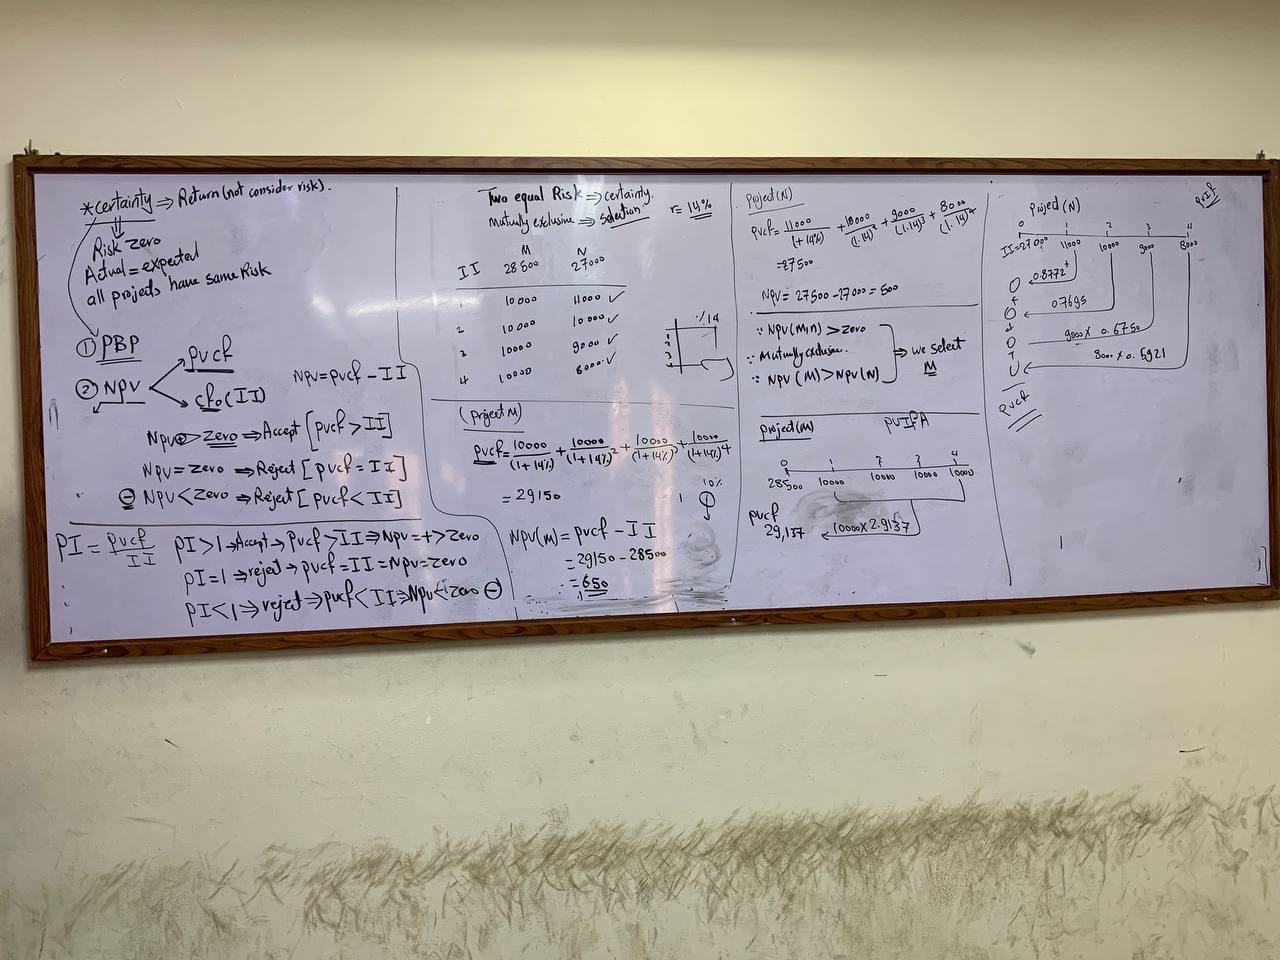 *certainty ⇒ Return (not consider risk).
Risk zero
Actual = expected
all projects have same Risk
① PBP
② NPV
PVCF
CF₀ (II)
NPV = PVCF - II
NPV ⊕ > zero ⇒ Accept [PVCF > II]
NPV = zero ⇒ Reject [PVCF = II]
⊖ NPV < zero ⇒ Reject [PVCF < II]
PI = PVCF / II
PI > 1 → Accept → PVCF > II ⇒ NPV = + > zero
PI = 1 ⇒ reject → PVCF = II = NPV = zero
PI < 1 ⇒ reject ⇒ PVCF < II ⇒ NPV < zero ⊖
Two equal Risk ⇒ certainty.
mutually exclusive ⇒ selection
r = 14%
M N
II 28500 27000
1 10000 11000 ✓
2 10000 10000 ✓
3 10000 9000 ✓
4 10000 8000 ✓
%14
(project M)
PVCF = 10000/(1+14%) + 10000/(1+14%)² + 10000/(1+14%)³ + 10000/(1+14%)⁴
= 29150
10%
1
NPV(M) = PVCF - II
= 29150 - 28500
= 650
Project (N)
PVCF = 11000/(1+14%) + 10000/(1.14)² + 9000/(1.14)³ + 8000/(1.14)⁴
= 27500
NPV = 27500 - 27000 = 500
∵ NPV(M,N) > zero
∵ Mutually exclusive.
∵ NPV (M) > NPV (N)
⇒ we select
M
project (M)
PVIFA
0 1 2 3 4
28500 10000 10000 10000 10000
PVCF
29,137 10000 x 2.9137
PVIF
Project (N)
0 1 2 3 4
II = 27000 11000 10000 9000 8000
0.8772
0.7695
9000 x 0.6750
8000 x 0.5921
PVCF